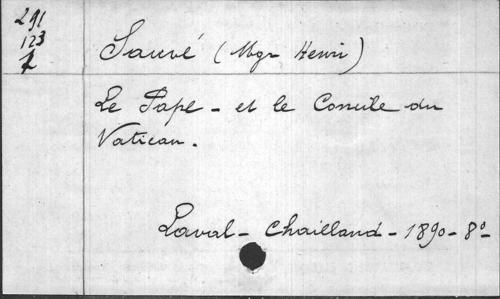 291
123
1
Sauvé (Mgr Henri)
Le Pape - et le Concile du
Vatican.
Laval - Chailland - 1890 - 8º